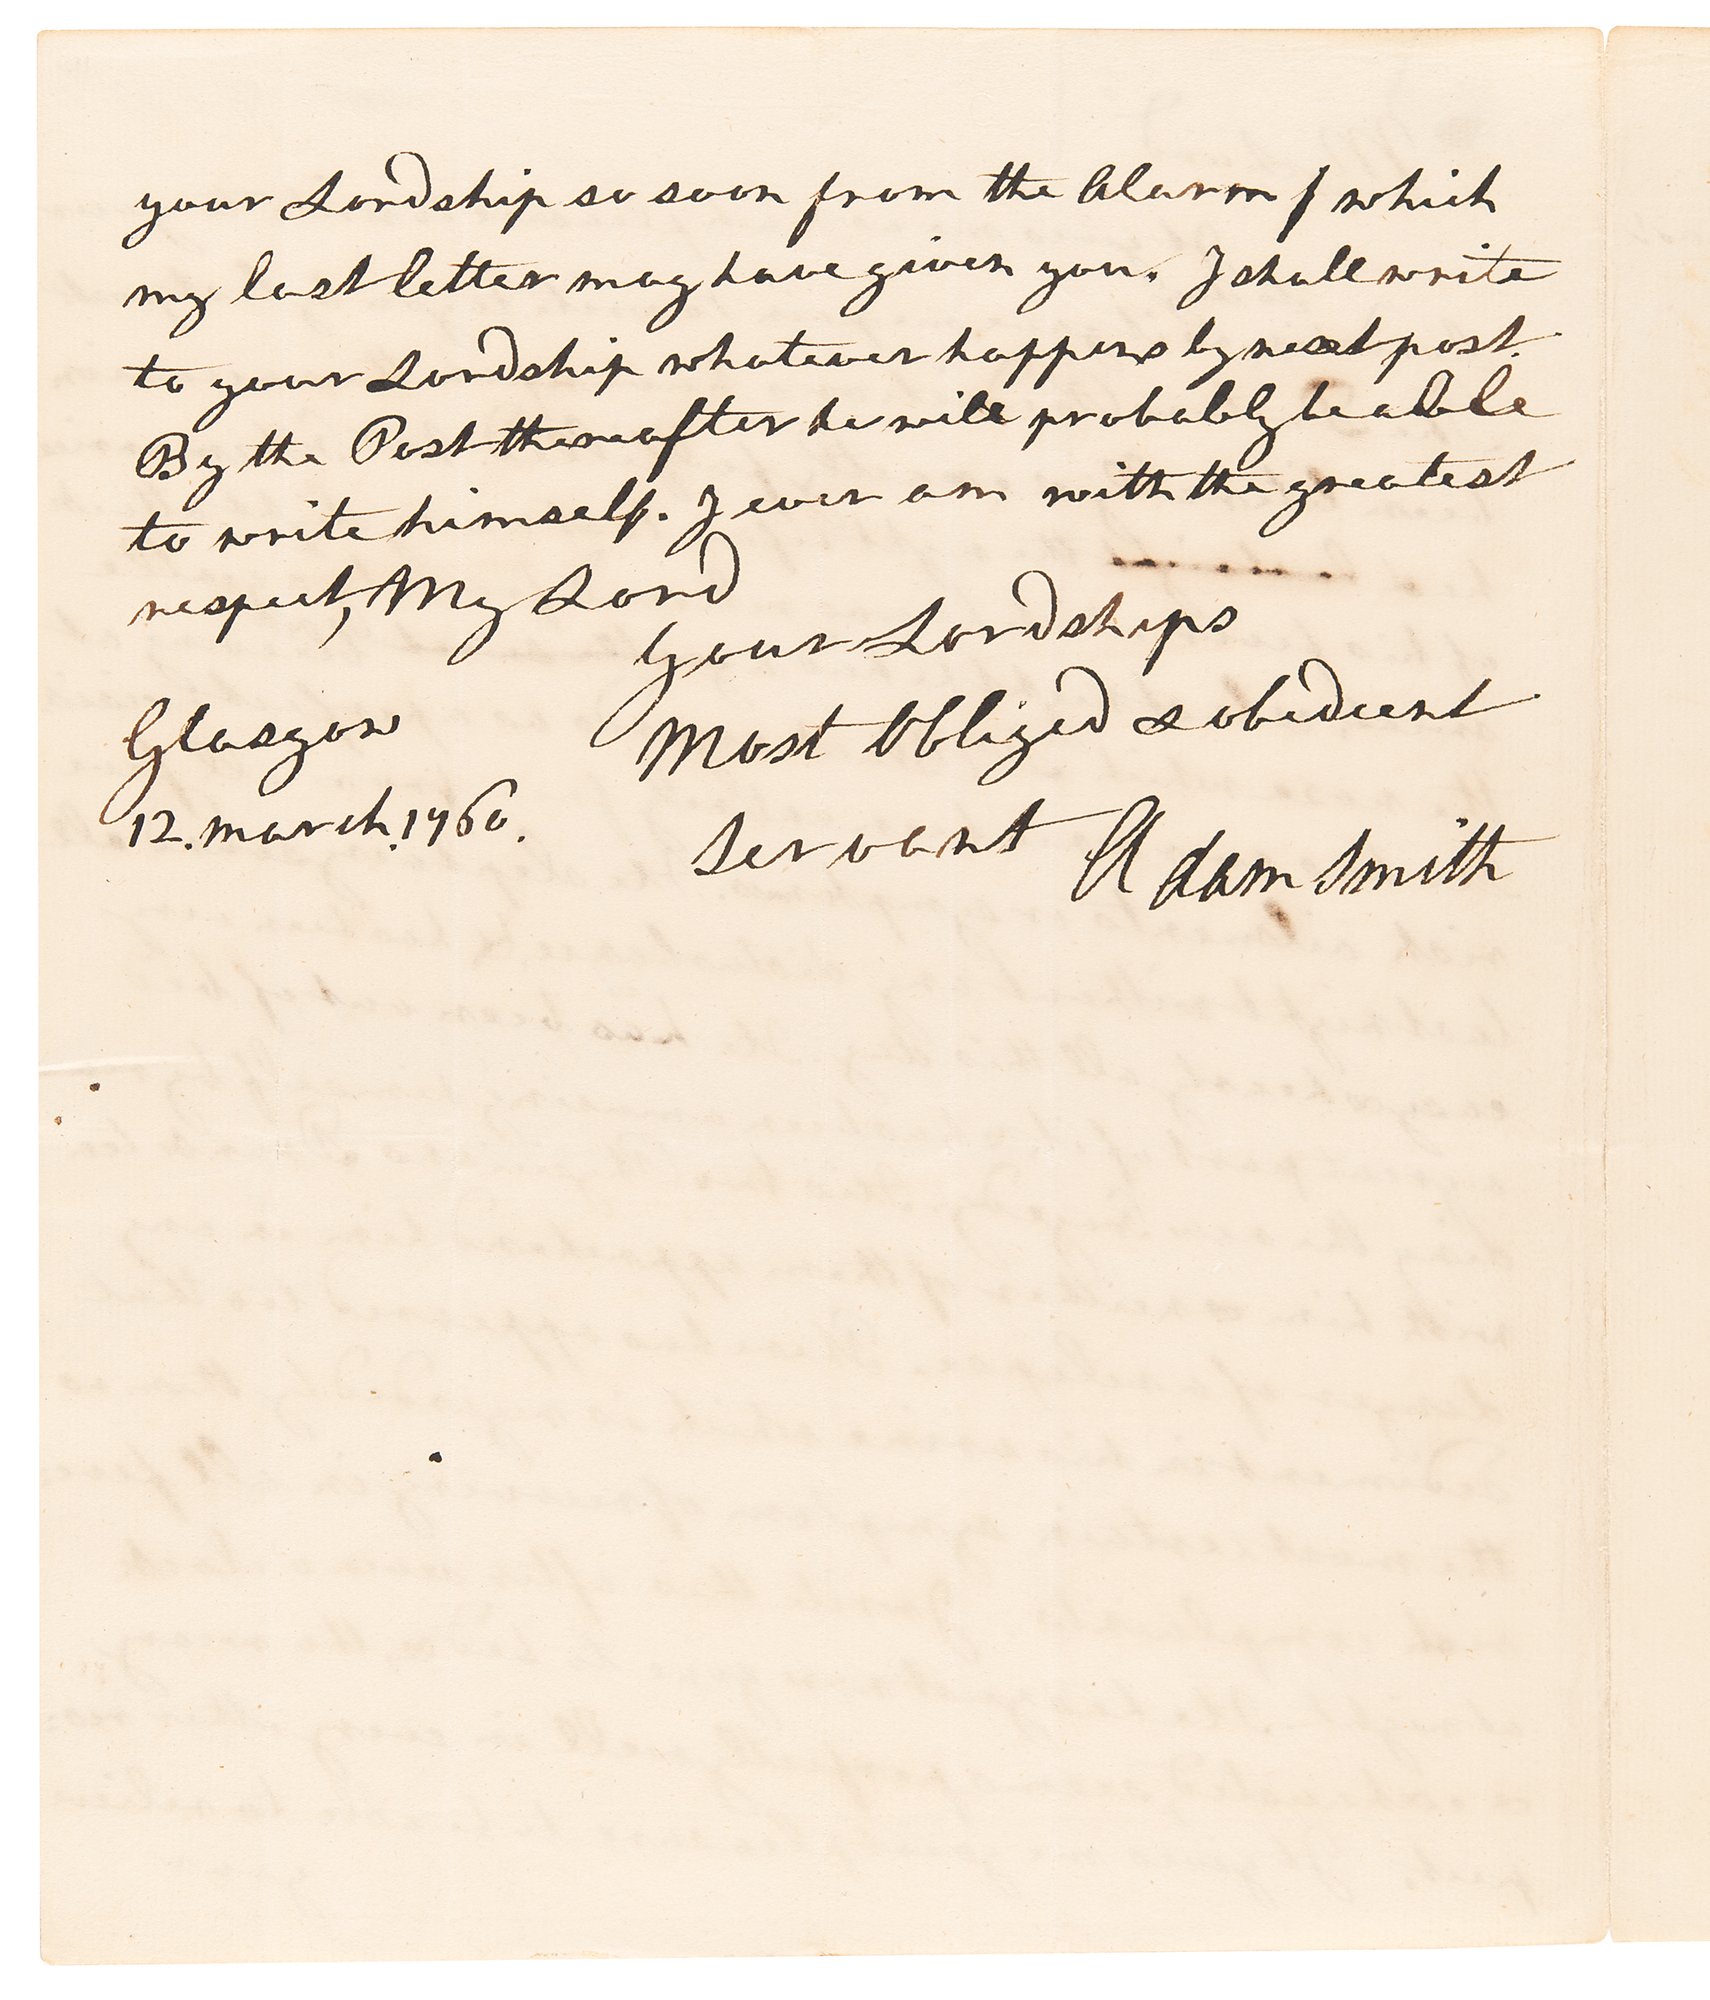 your Lordship so soon from the Alarm which
my last letter may have given you. I shall write
to your Lordship whatever happens by next post.
By the Post thereafter he will probably be able
to write himself. I ever am with the greatest
respect, My Lord
Your Lordships
Most Obliged & obedient
Servant Adam Smith
Glasgow
12. march. 1760.